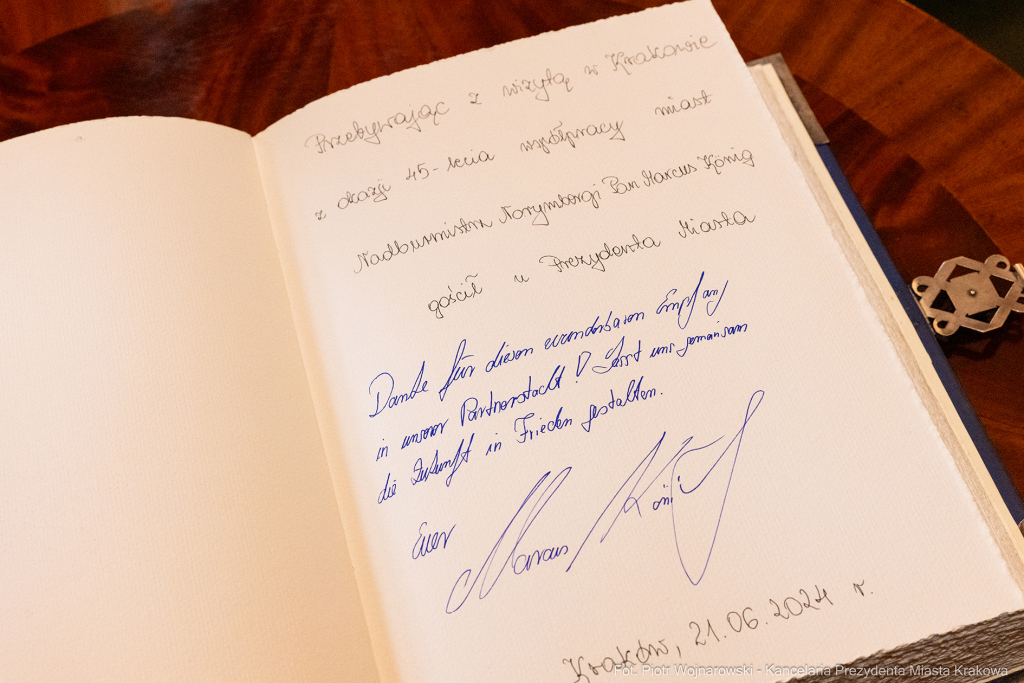 Przebywając z wizytą w Krakowie
z okazji 45-lecia współpracy miast
Nadburmistrz Norymbergi Pan Marcus König
gościł u Prezydenta Miasta
Danke für diesen wunderbaren Empfang
in unserer Partnerstadt! Lasst uns gemeinsam
die Zukunft in Frieden gestalten.
Euer
Marcus König
Kraków, 21.06.2024 r.
Fot. Piotr Wojnarowski - Kancelaria Prezydenta Miasta Krakowa